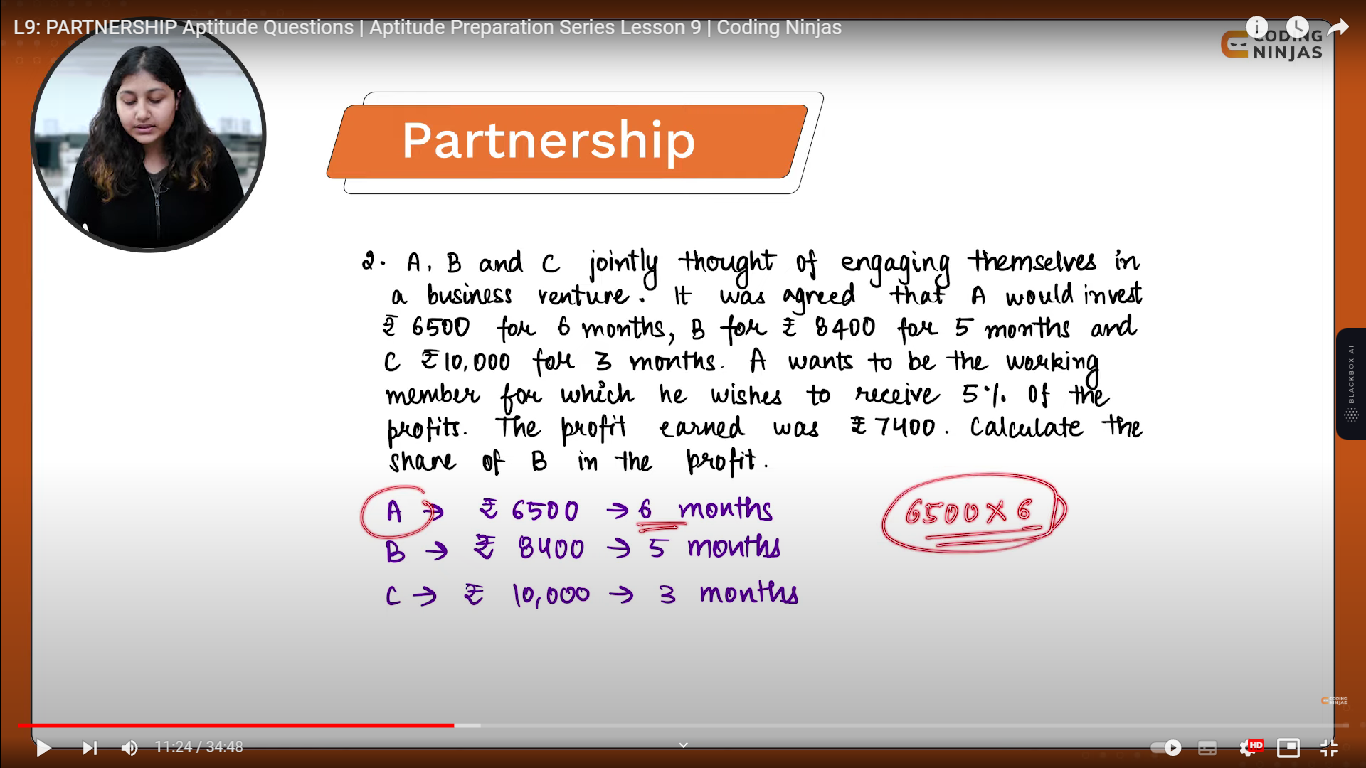 L9: PARTNERSHIP Aptitude Questions | Aptitude Preparation Series Lesson 9 | Coding Ninjas
CODING
NINJAS
Partnership
2. A, B and C jointly thought of engaging themselves in
a business venture. It was agreed that A would invest
₹ 6500 for 6 months, B for ₹ 8400 for 5 months and
C ₹10,000 for 3 months. A wants to be the working
member for which he wishes to receive 5% of the
profits. The profit earned was ₹ 7400. Calculate the
share of B in the profit.
A → ₹ 6500 → 6 months
6500 × 6
B → ₹ 8400 → 5 months
C → ₹ 10,000 → 3 months
BLACKBOX AI
CODING
NINJAS
11:24 / 34:48
HD